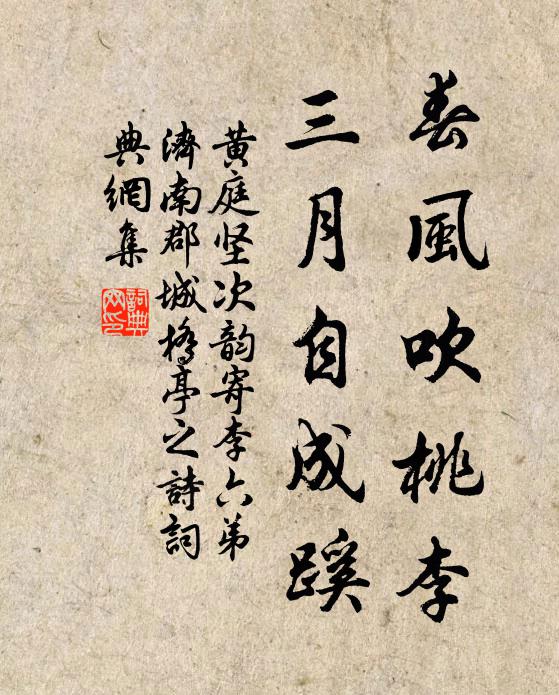 春風吹桃李
三月自成蹊
黄庭坚次韵寄李六弟
濟南郡城橋亭之詩詞
典網集
詞典
网印